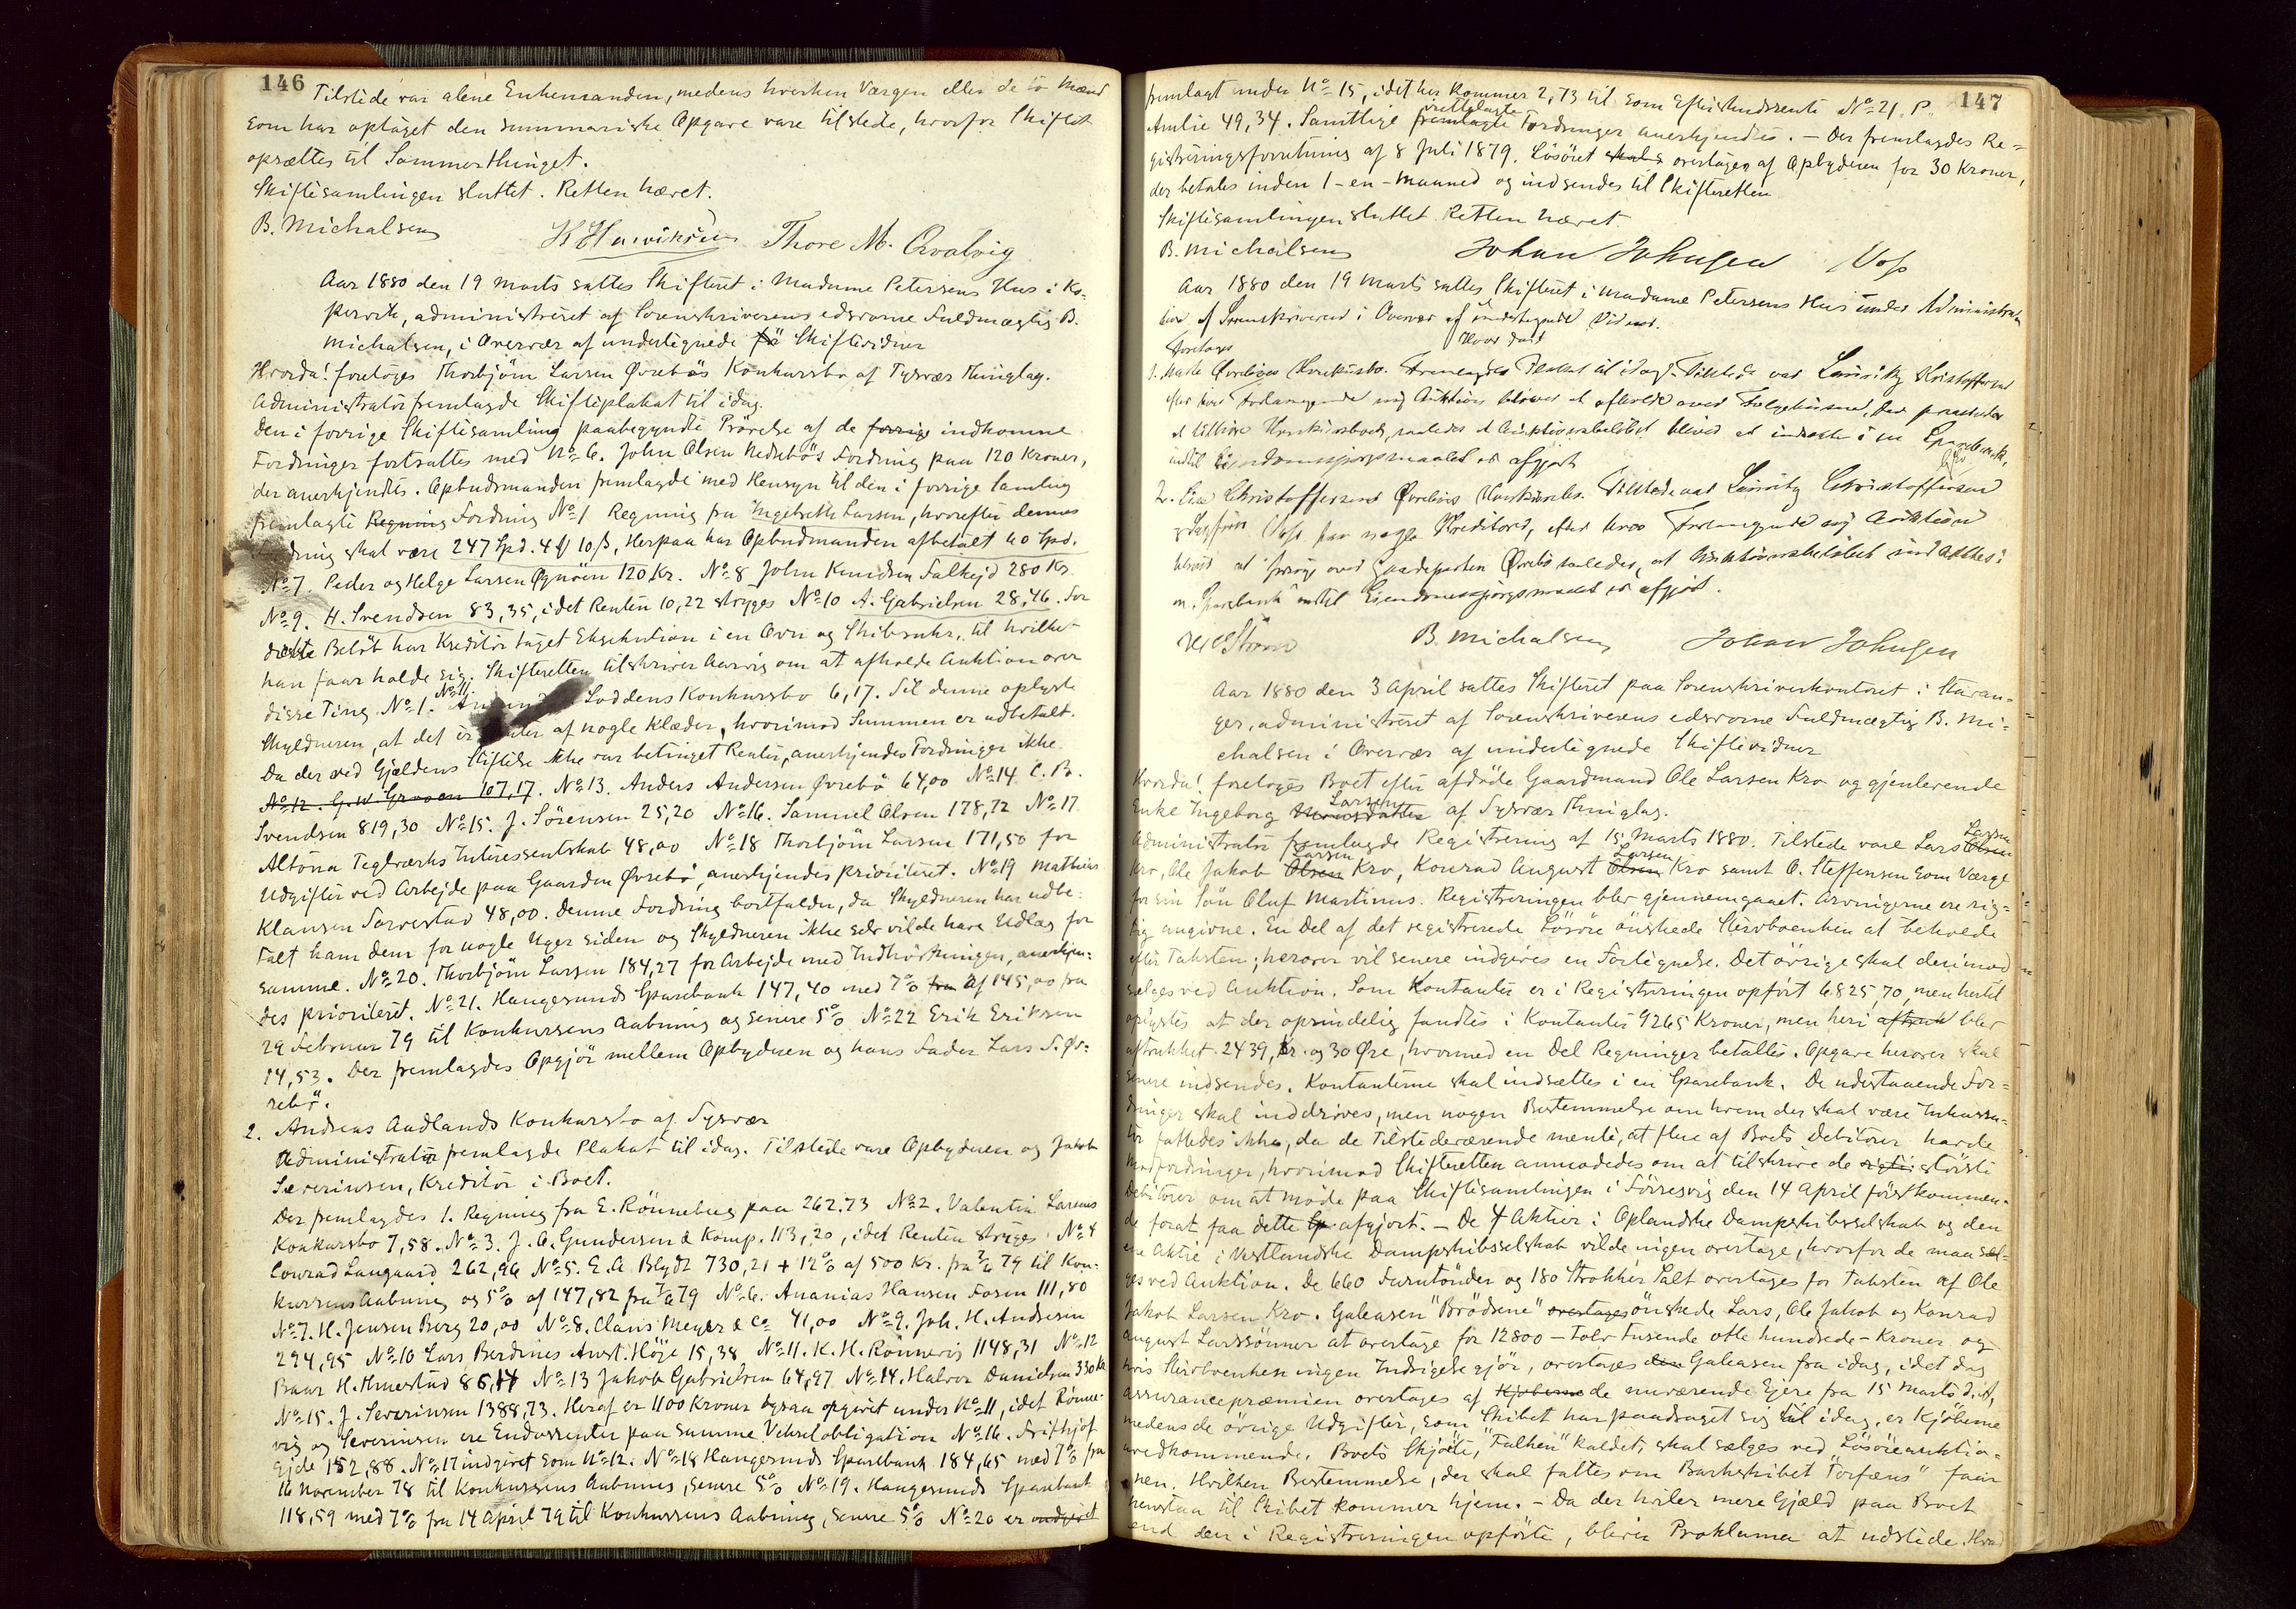 146
Tilstede var alene Enkemanden, medens hverken Værgen eller de to Mænd
som har optaget den summariske Opgave vare tilstede, hvorfor Skiftet
opsættes til Sommerthinget.
Skiftesamlingen sluttet. Retten hævet.
B. Michalsen H Henriksen Thore M. Qvalvig
Aar 1880 den 19 Marts sattes Skifteret i Madame Petersens Hus i Ko-
pervik, administreret af Sorenskriverens edsvorne Fuldmægtig B.
Michalsen, i Overvær af undertegnede to Skiftevidner
Hvorda! foretoges Thorbjörn Larsen Øvrebös Konkursbo af Tysvær Thinglag.
Administrator fremlagde Skifteplakat til idag.
Den i forrige Skiftesamling paabegyndte Prövelse af de forrige indkomne
Fordringer fortsattes med No 6. John Olsen Nedrebös Fordring paa 120 Kroner,
der anerkjendtes. Opbudsmanden fremlagde med Hensyn til den i forrige Samling
fremlagte Regning Fordring No 1 Regning fra Ingebreth Larsen, hvorefter dennes
Fordring skal være 247 Spd. 4 10 ß, Herpaa har Opbudmanden afbetalt 40 Spd.
No 7. Peder og Helge Larsen Øgnöen 120 Kr. No 8 John Knudsen Falkejd 280 Kr.
No 9. H. Svendsen 83,35, idet Renten 10,22 stryges No 10 A. Gabrielsen 28,46. For
dette Belöb har Kreditor taget Eksekution i en Ovn og Skibsuhr, til hvilket
han faar holde sig. Skifteretten tilskriver Aarvig om at afholde Auktion over
disse Ting No 1. No 11. Loddens Konkursbo 6,17. Til denne oplyste
Skyldneren, at det er af nogle Klæder, hvorimod Summen er udbetalt.
Da der ved Gjældens Stiftelse ikke var betinget Renter, anerkjendes Fordringen ikke.
No 12. G. W. Graven 107,17. No 13. Anders Andersen Øvrebö 64,00 No 14. C. B.
Svendsen 819,30 No 15. J. Sörensen 25,20 No 16. Samuel Olsen 178,72 No 17
Altona Teglværks Interessentskab 48,00 No 18 Thorbjörn Larsen 171,50 for
Udgifter ved Arbejde paa Gaarden Øvrebö, anerkjendes prioriteret. No 19 Mathias
Klausen Sørvestad 48,00. Denne Fordring bortfalder, da Skyldneren har udbe-
talt ham dem for nogle Uger siden og Skyldneren ikke selv vilde have Udlæg for
samme. No 20. Thorbjörn Larsen 184,27 for Arbejde med Indhöstningen, anerkjen-
des prioriteret. No 21. Haugesunds Sparebank 147,40 med 7% fra af 145,00 fra
29 Februar 79 til Konkursens Aabning og senere 5% No 22 Erik Eriksen
14,53. Der fremlagdes Opgjör mellem Opbyderen og hans Fader Lars T. Øv-
rebö.
2. Andreas Aadlands Konkursbo af Tysvær
Administrator fremlagde Plakat til idag. Tilstede vare Opbyderen og Jakob
Severinsen, Kreditor i Boet.
Der fremlagdes 1. Regning fra E. Rönneberg paa 262.73 No 2. Valentin Larsens
Konkursbo 7,58. No 3. J. A. Gundersen & Komp. 113,20, idet Renten stryges No 4
Conrad Langaard 262,96 No 5. E. A. Blydt 730,21 + 12% af 500 Kr. fra 79 til Kon-
kursens Aabning og 5% af 147,82 fra 79 No 6. Ananias Hansen Fosen 111,80
No 7. H. Jensen Berg 20,00 No 8. Claus Meyer & Co 41,00 No 9. Joh. H. Andresen
294,95 No 10 Lars Berdines Anst. Höje 15,38 No 11. K. H. Rönnevig 1148,31 No 12
Baar H. Huestad 86,14 No 13 Jakob Gabrielsen 64,97 No 14. Halvor Danielsen 330 Kr
No 15. J. Severinsen 1388,73. Heraf er 1100 Kroner ogsaa opgivet under No 11, idet Rönne-
vig og Severinsen ere Endossenter paa samme Vekselobligation No 16. Frithjof
Ejde 152,88. No 17 indgivet som No 12. No 18 Haugesunds Sparebank 184,65 med 7% fra
16 November 78 til Konkursens Aabning, senere 5% No 19. Haugesunds Sparebank
118,59 med 7% fra 14 April 79 til Konkursens Aabning, senere 5% No 20 er indgivet
147
fremlagt under No 15, idet her kommer 2,73 til som Efterskudsrente No 21. P.
Amlie 49,34. Samtlige fremlagte irettelagte Fordringer anerkjendtes. – Der fremlagdes Re-
gistreringsforretning af 8 Juli 1879. Lösöret skal overtages af Opbyderen for 30 Kroner,
der betales inden 1 – en – Maaned og indsendes til Skifteretten.
Skiftesamlingen sluttet. Retten hævet.
B. Michalsen Johan Johnsen Voss
Aar 1880 den 19 Marts sattes Skifteret i Madame Petersens Hus under Administra-
tion af Sorenskriveren i Overvær af undertegnede Vidner.
Hvor da
foretoges
1. Øvrebös Konkursbo. Fremlagdes Plakat til idag. Tilstede var Lauritz Kristoffersen
efter hvis Forlangende ny Auktion bliver at afholde over Fælgebusene, der
at tilhöre Konkursboet, saaledes at Auktionsbelöbet bliver at indsætte i en Sparebank,
indtil Eiendomsspörgsmaalet er afgjort
2. Christoffersens Øvrebös Konkursbo. Tilstede var Lauritz Christoffersen
og Sagförer Voss for nogle Kreditorer, efter hvis Forlangende ny Auktion
bliver at foretage over Gaardeparten Øvrebö saaledes, at Auktionsbelöbet indsættes i
en Sparebank indtil Eiendomsspörgsmaalet er afgjort.
B. Michalsen Johan Johnsen
Aar 1880 den 3 April sattes Skifteret paa Sorenskriverkontoret i Stavan-
ger, administreret af Sorenskriverens edsvorne Fuldmægtig B. Mi-
chalsen i Overvær af undertegnede Skiftevidner
Hvorda! foretoges Boet efter afdöde Gaardmand Ole Larsen Kro og gjenlevende
Enke Ingeborg Larsen af Tysvær Thinglag.
Administrator fremlagde Registrering af 15 Marts 1880. Tilstede vare Lars Olsen Larsen
Kro, Ole Jakob Olsen Larsen Kro, Konrad August Olsen Larsen Kro samt O. Steffensen som Værge
for sin Sön Oluf Martinus. Registreringen blev gjennemgaaet. Arvingerne ere rig-
tig angivne. En Del af det registrerede Lösöre önskede Stervboenken at beholde
efter Taksten; herover vil senere indgives en Fortegnelse. Det övrige skal derimod
sælges ved Auktion. Som Kontanter er i Registreringen opfört 6825,70, men hertil
oplystes at der oprindelig fandtes i Kontanter 9265 Kroner, men heri aftrak blev
aftrukket 2439, Kr. og 30 Øre, hvormed en Del Regninger betaltes. Opgave herover skal
senere indsendes. Kontanterne skal indsættes i en Sparebank. De udestaaende For-
dringer skal inddrives, men nogen Bestemmelse om hvem der skal være Inkassa-
tor fattedes ikke, da de Tilstedeværende mente, at flere af Boets Debitorer havde
Modfordringer, hvorimod Skifteretten anmodedes om at tilskrive de rigtig störste
Debitorer om at möde paa Skiftesamlingen i Förresvig den 14 April förstkommen-
de forat faa dette Sp afgjort. – De 4 Aktier i Oplandske Dampskibsselskab og den
ene Aktie i Vestlandske Dampskibsselskab vilde ingen overtage, hvorfor de maa sæl-
ges ved Auktion. De 660 Furutönder og 180 Strokker Salt overtages for Taksten af Ole
Jakob Larsen Kro. Galeasen "Brödrene" overtages önskede Lars, Ole Jakob og Konrad
August Larssönner at overtage for 12800 – Tolv Tusende otte hundrede – Kroner og
hvis Stervboenken ingen Indsigelse gjör, overtages den Galeasen fra idag, idet dog
Assurancepræmien overtages af Kjöberne de nuværende Ejere fra 15 Marts d. A,
medens de övrige Udgifter, som Skibet har paadraget sig til idag, er Kjöberne
uvedkommende. Boets Skjöite, "Falken" kaldet, skal sælges ved Lösöreauktio-
nen. Hvilken Bestemmelse, der skal fattes om Barkskibet "Torfæus" faar
henstaa til Skibet kommer hjem. – Da der hviler mere Gjæld paa Boet
end den i Registreringen opförte, bliver Proklama at udstede. Hvad